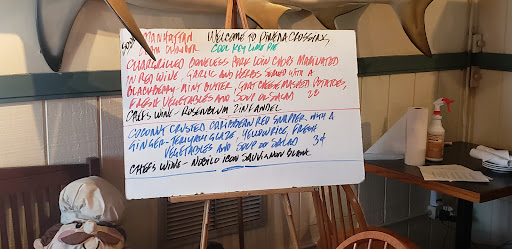 Manhattan
Clam Chowder
Welcome to Pirena Crossing,
Cool Key Lime Pie
Chargrilled Boneless Pork Loin Chops Marinated
in Red Wine, Garlic and Herbs Served with a
Blackberry-Mint Butter, Goat Cheese Mashed Potatoes,
Fresh Vegetables and Soup or Salad 28
Chefs Wine - Rosenblum Zinfandel
Coconut Crusted Caribbean Red Snapper with a
Ginger-Teriyaki Glaze, Yellow Rice, Fresh
Vegetables and Soup or Salad 34
Chefs Wine - Nobilo Icon Sauvignon Blanc